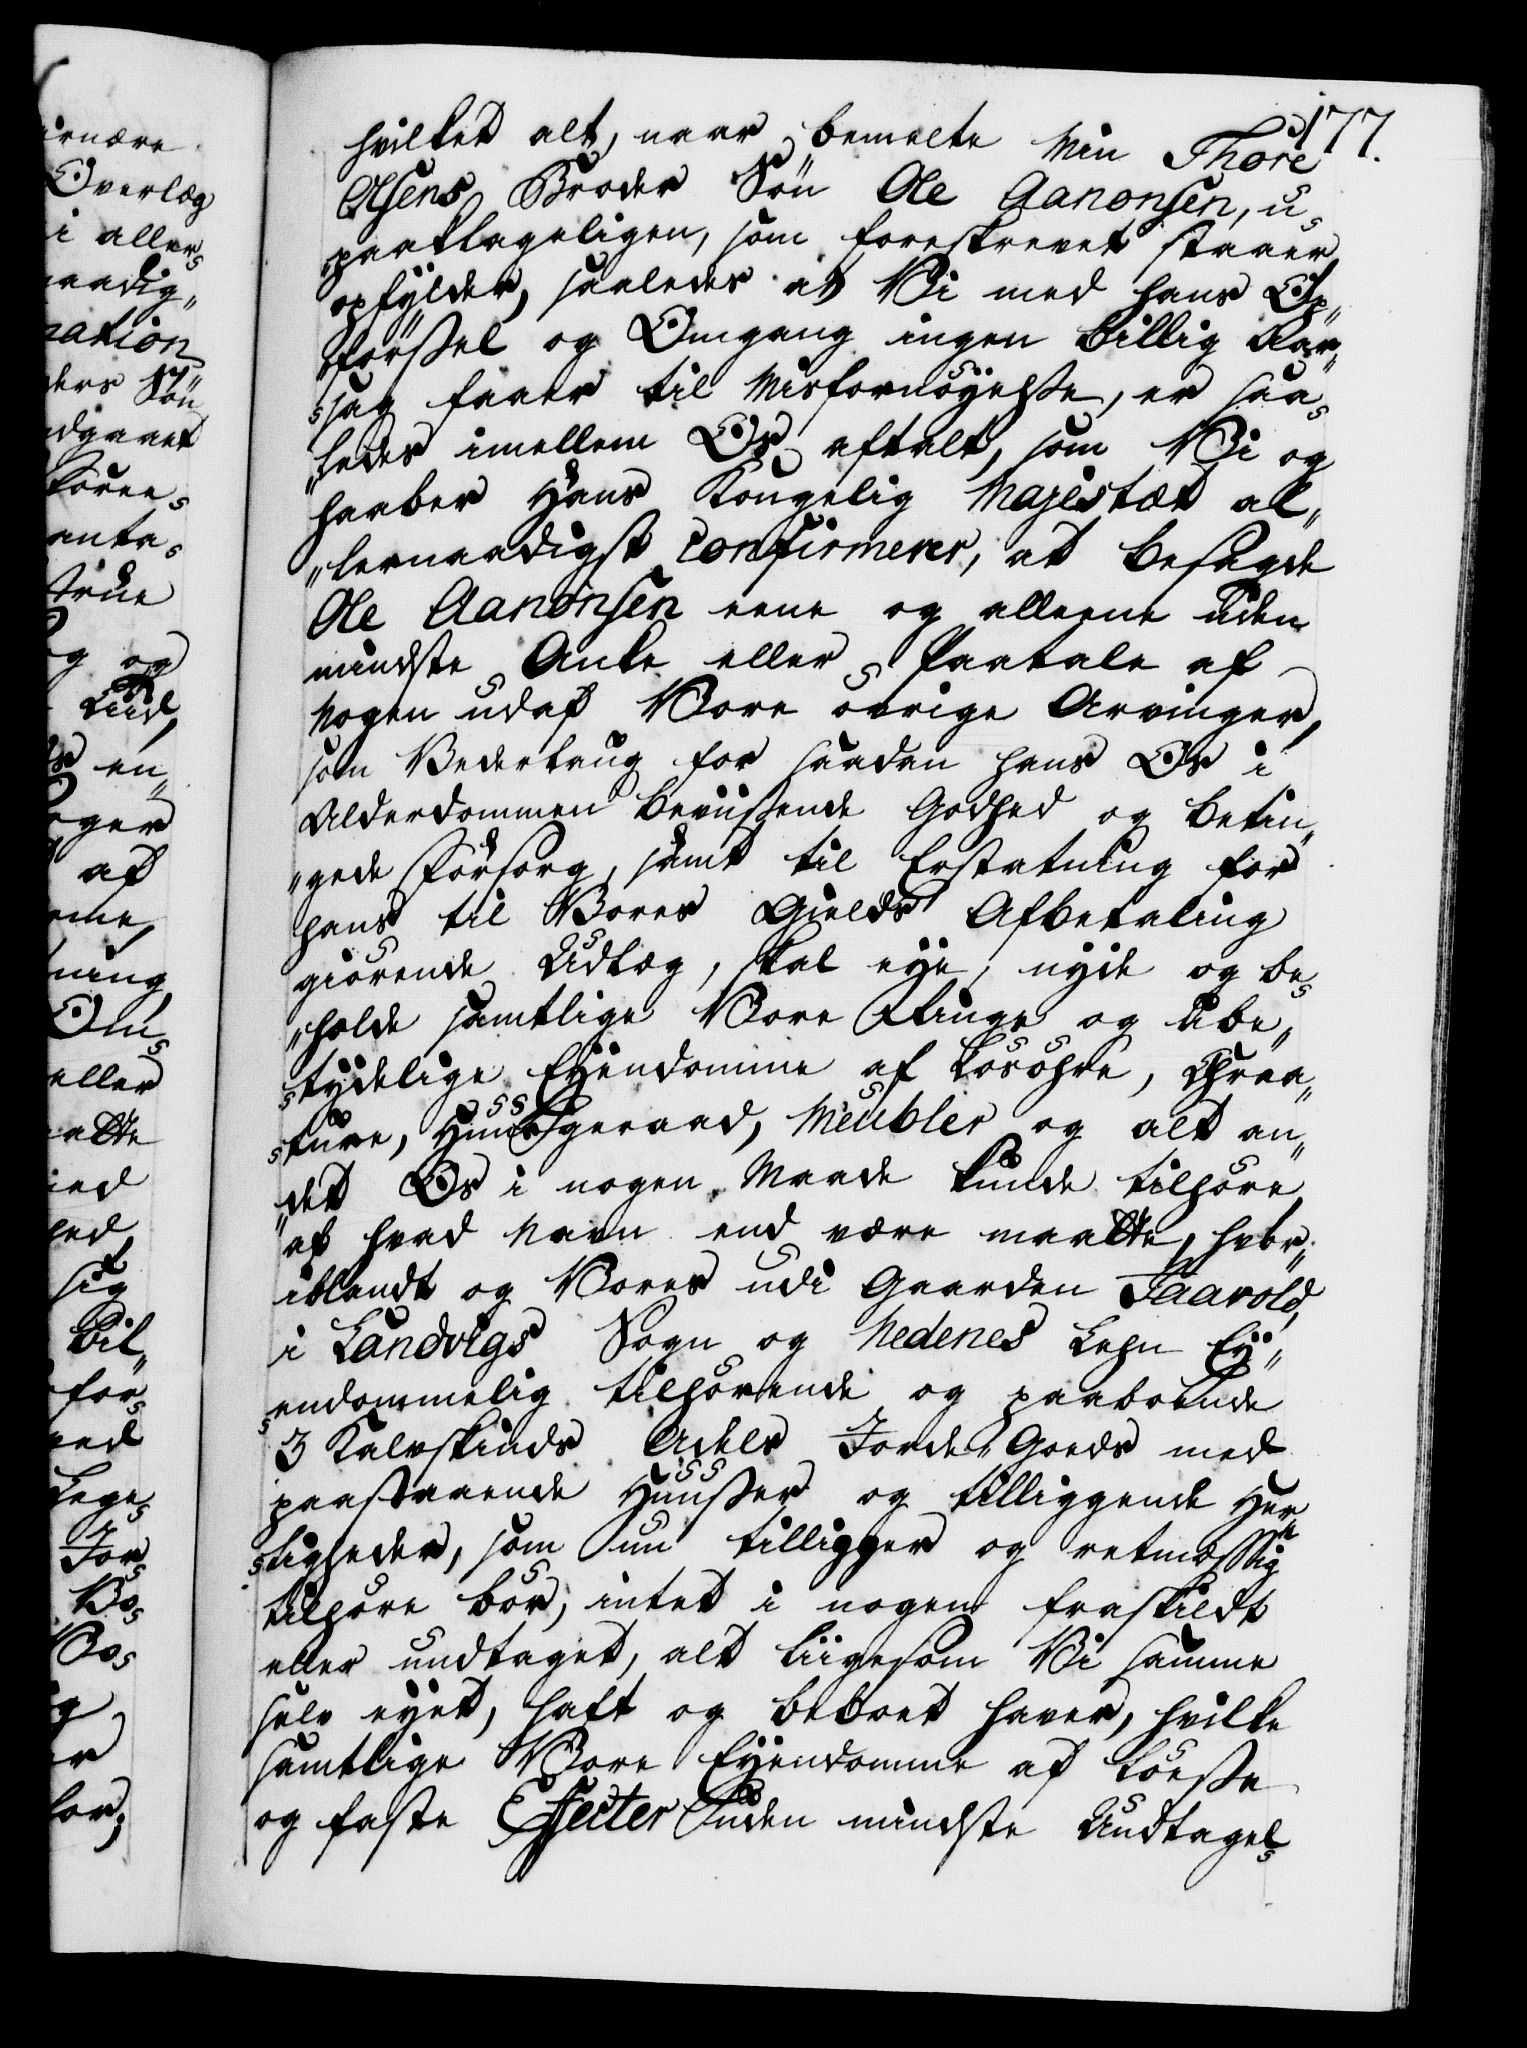 177.
hvilket alt, naar bemelte Min Thore
Olsens Broder Søn Ole Aanonsen, u-
paaklageligen, som foreskrevet staaer,
opfylder, saaledes at Vi med hans Op-
førssel og Omgang ingen billig Aar-
sag faaer til Misfornøyelsse, er saa-
ledes imellem Os aftalt, som Vi og
haaber Hans Kongelig Majestæt al-
lernaadigst confirmerer, at besagde
Ole Aanonsen eene og alleene uden
mindste Anke eller Paatale af
Nogen udaf Vore øvrige Arvinger,
som Vederlaug for saadan hans Os i
Alderdommen beviissende Godhed og betin-
gede Forsorg, samt til Erstatning for
hans til Vores Gields Afbetaling
giørende Udlæg, skal eye, nyde og be-
holde samtlige Vore Ringe og ube-
tydelige Eyendomme af Løsøhre, Chrea-
ture, Huusgeraad, Meubler og alt an-
det Os i nogen Maade kunde tilhøre,
af hvad Navn end være maatte, hvor-
iblandt og Vores udi Gaarden Taarold,
i Landvigs Sogn og Nedenes Lehn Ey-
endommelig tilhørende og paaboende
3 Kalvskinds Adels Jorde-Goeds med
paastaaende Huusser og tilliggende Her-
ligheder, som nu tilligger og retmæssig
tilhøre bør, intet i nogen fraskildt
eller undtaget, alt liigesom Vi samme
selv eyet, haft og beboet haver, hvilke
samtlige Vore Eyendomme af Løesse
og faste Effecter uden mindste Undtagel-